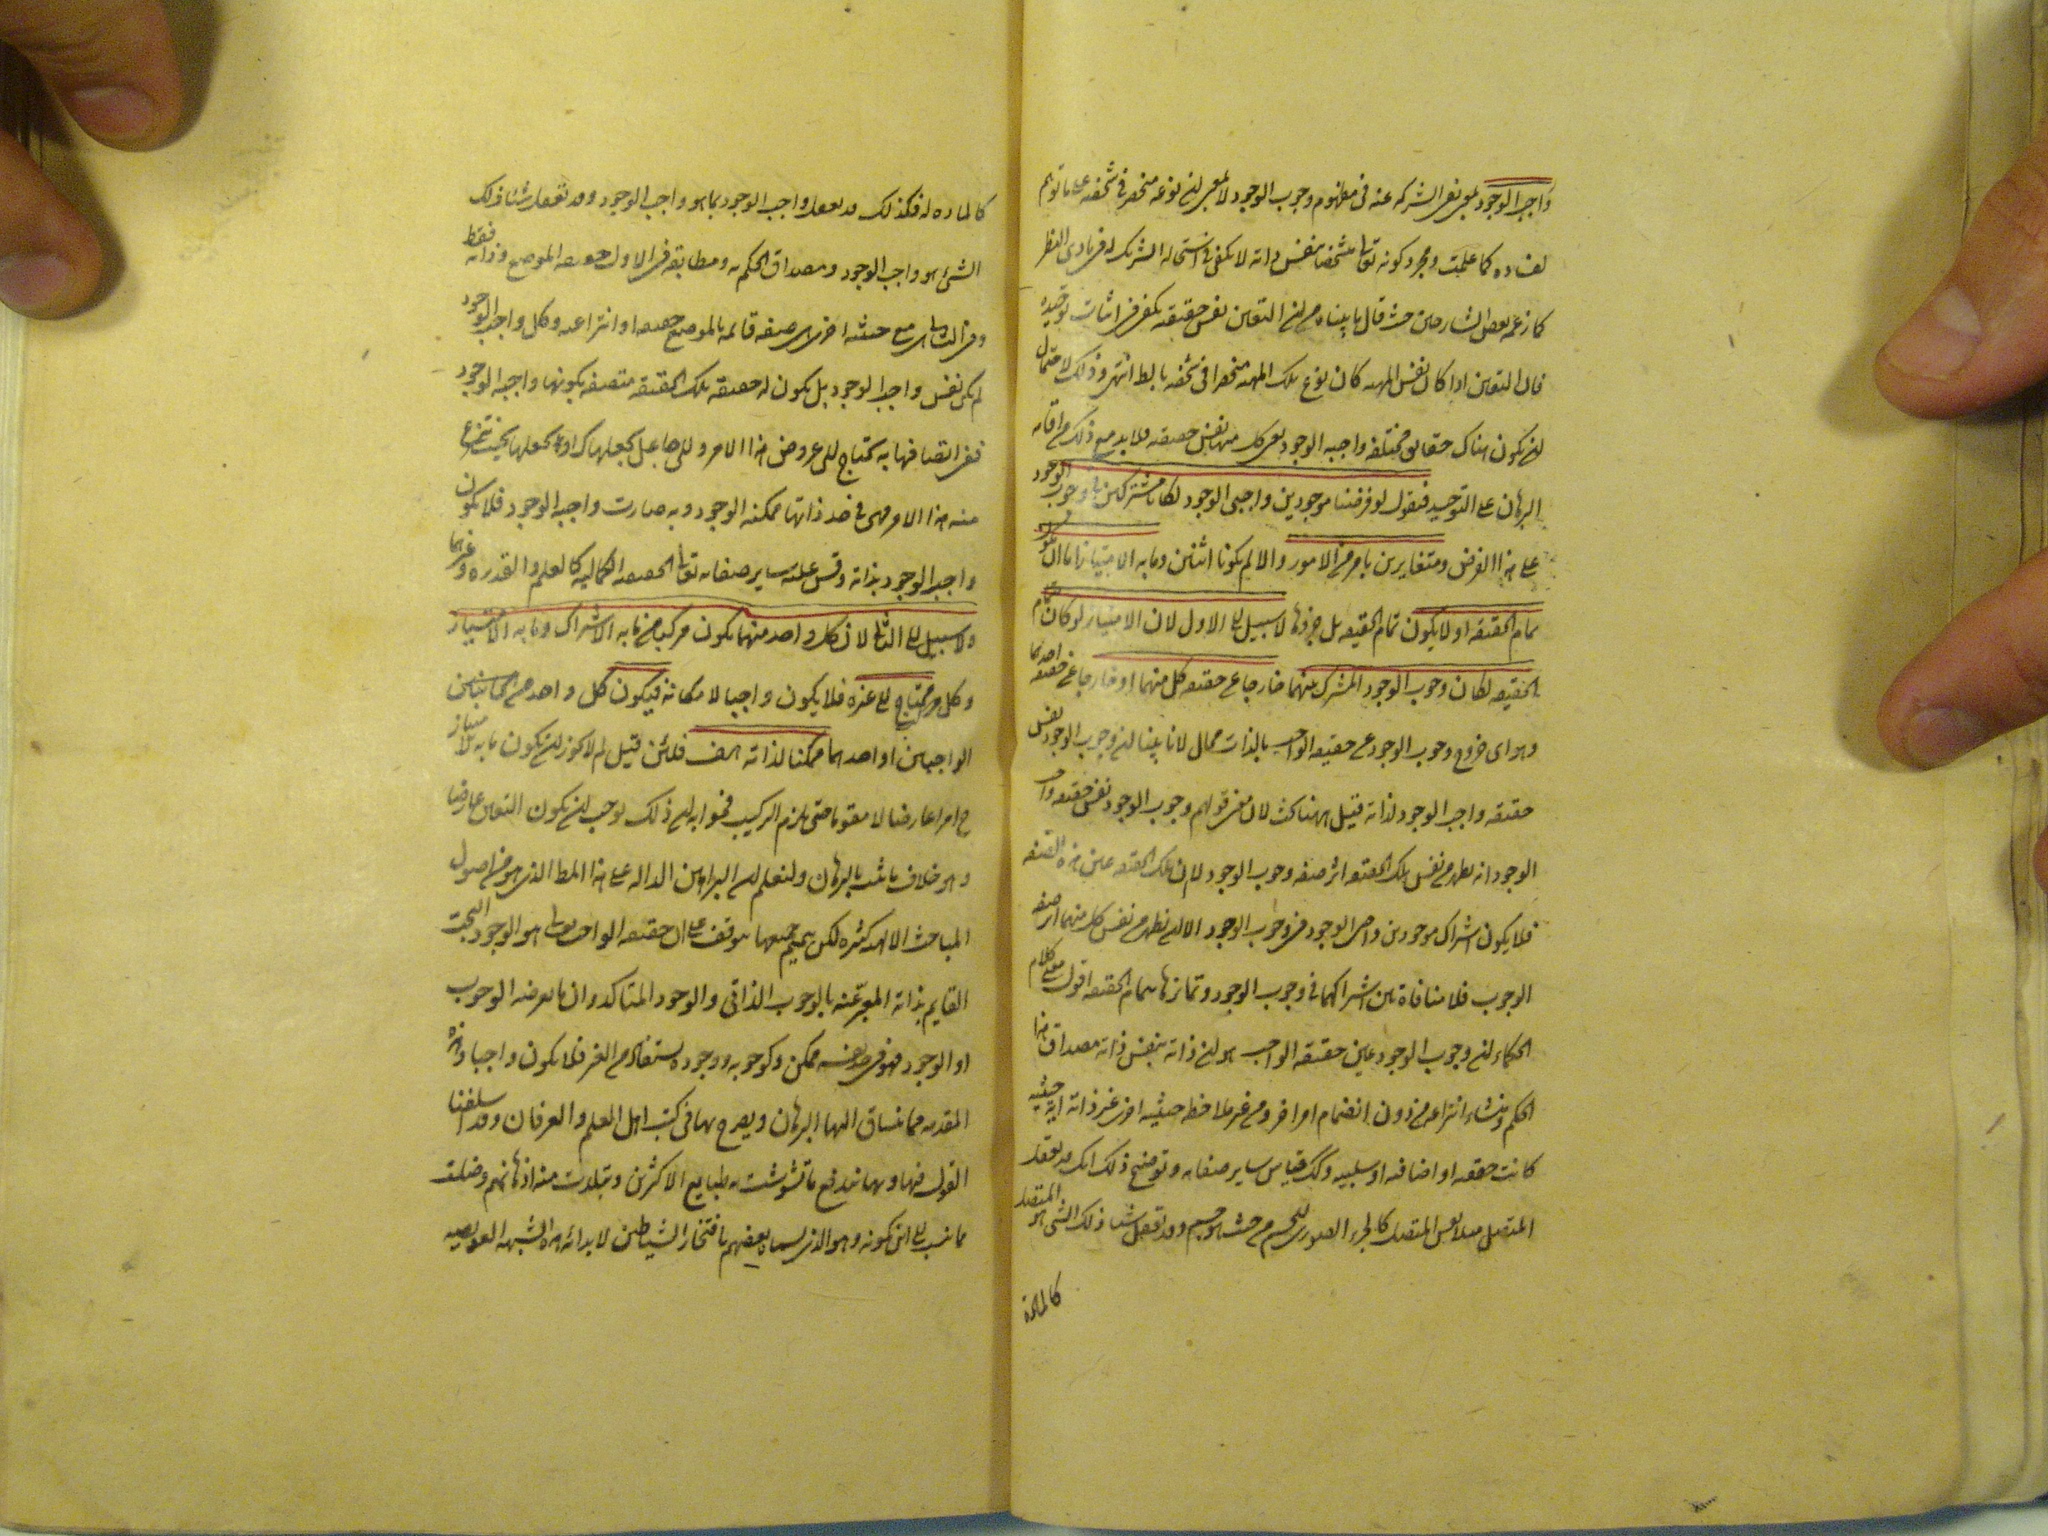 واجب الوجود بمعنى نفى الشركه عنه فى مفهوم وجوب الوجود لا بمعنى ان نوعه منحصر فى شخصه على ما توهم
لفساده كما علمت ومجرد كونه تعالى متشخصا بنفس ذاته لا يكفى فى استحاله الشريك له فى بادى النظر
كما زعم بعض الشارحين حيث قال ما بيناه من ان التعين نفس حقيقته يكفى فى اثبات توحيده
فان التعين اذا كان نفس المهيه كان نوع تلك المهيه منحصرا فى شخصه بالبط انتهى وذلك لاحتمال
ان يكون هناك حقايق مختلفه واجبه الوجود تعين كل منها نفس حقيقته فلا بد مع ذلك من اقامه
البرهان على التوحيد فنقول لو فرضنا موجودين واجبى الوجود لكانا مشتركين فى وجوب الوجود
على هذا الفرض ومتغايرين بامر من الامور والا لم يكونا اثنين وما به الامتياز اما ان يكون
تمام الحقيقه او لا يكون تمام الحقيقه بل جزؤها لا سبيل الى الاول لان الامتياز لو كان بتمام
الحقيقه لكان وجوب الوجود المشترك بينهما خارجا عن حقيقه كل منهما او خارجا عن حقيقه احدهما
وهو اى خروج وجوب الوجود عن حقيقه الواجب بالذات محال لانا بينا ان وجوب الوجود نفس
حقيقه واجب الوجود لذاته قيل ههنا بحث لان معنى قولهم وجوب الوجود نفس حقيقه واجب
الوجود انه يظهر من نفس تلك الحقيقه اثر صفه وجوب الوجود لا ان تلك الحقيقه عين هذه الصفه
فلا يكون اشتراك موجودين واجبى الوجود فى وجوب الوجود الا ان يظهر من نفس كل منهما اثر صفه
الوجوب فلا منافاة بين اشتراكهما فى وجوب الوجود وتمايزهما بتمام الحقيقه اقول معنى كلام
الحكماء ان وجوب الوجود عين حقيقه الواجب هو ان ذاته بنفس ذاته مصداق هذا
الحكم ومنشاء انتزاعه من دون انضمام امر اخر ومن غير ملاحظه حيثيه اخرى غير ذاته ايه حيثيه
كانت حقيقيه او اضافيه او سلبيه وكك قياس ساير صفاته وتوضيح ذلك انك قد تعقل
المتصل مثلا نفس المتصل كالجزء الصورى للجسم من حيث هو جسم وقد تعقل شيئا ذلك الشى هو المتصل
كالمادة
كالماده له فكذلك قد تعقل واجب الوجود بما هو واجب الوجود وقد تعقل شيئا ذلك
الشئ هو واجب الوجود ومصداق الحكم به ومطابقه فى الاول حقيقه الموضوع وذاته فقط
وفى الثانى هى مع حيثيه اخرى هى صفه قائمه بالموضوع حقيقيه او انتزاعيه وكل واجب الوجود
لم يكن نفس واجب الوجود بل يكون له حقيقه تلك الحقيقه متصفه بكونها واجبه الوجود
ففى اتصافها به تحتاج الى عروض هذا الامر والى جاعل يجعلها كك او يجعلها بحيث تنتزع
منه هذا الامر فهى فى حد ذاتها ممكنه الوجود وبه صارت واجب الوجود فلا يكون
واجب الوجود بذاته وقس عليه ساير صفاته تعالى الحقيقيه الكماليه كالعلم والقدره وغيرهما
ولا سبيل الى الثانى لان كل واحد منهما يكون مركبا من ما به الاشتراك وما به الامتياز
وكل مركب محتاج الى غيره فلا يكون واجبا لامكانه فيكون كل واحد من الجانبين
الواجبين او احدهما ممكنا لذاته هف فلئن قيل لم لا يجوز ان يكون ما به الامتياز
امرا عارضا لا مقوما حتى يلزم التركيب فجوابه ان ذلك يوجب ان يكون التعين عارضا
وهو خلاف ما ثبت بالبرهان ولنعلم ان البراهين الداله على هذا المطلب الذى هو من اصول
المباحث الالهيه كثيره لكن تتميم جميعها يتوقف على ان حقيقه الواجب تعالى هو الوجود البحت
القايم بذاته المعبر عنه بالوجوب الذاتى والوجود المتاكد وان ما يعرضه الوجوب
او الوجود فهو فى حد نفسه ممكن وكوجوبه ووجوده يستفاد من الغير فلا يكون واجبا وهذه
المقدمه مما ينساق اليها البرهان ويصرح بها فى كتب اهل العلم والعرفان وقد اسلفنا
القول فيها وبها يندفع ما تشوشت به طبايع الاكثرين وتبلدت منه اذهانهم وضلت
ما نسب الى ابن كمونه وهو الذى سماه بعضهم بافتخار الشياطين لابدائه هذه الشبهه العويصه